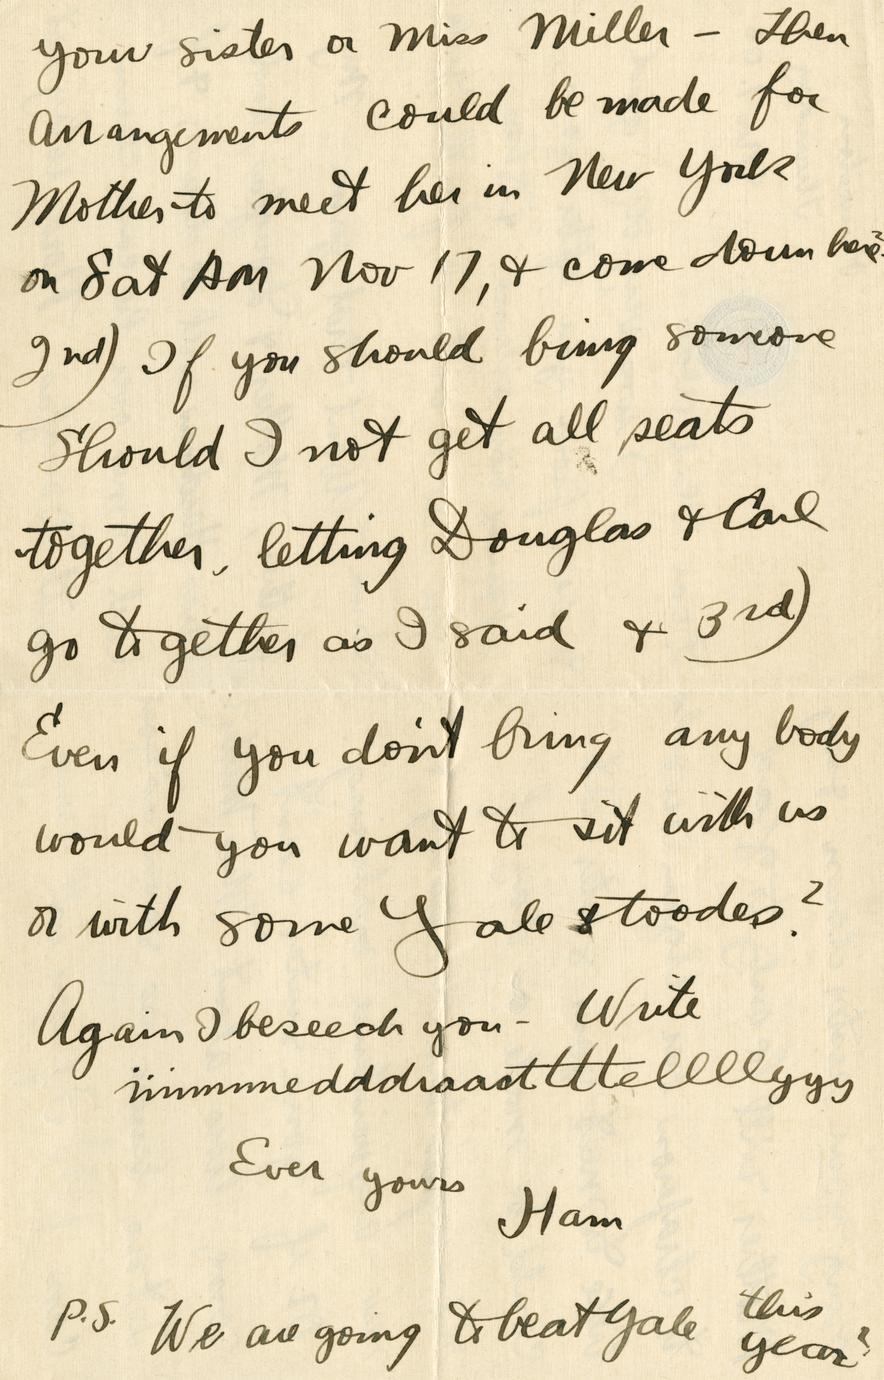 your sister or Miss Miller – Then
Arrangements could be made for
Mother to meet her in New York
on Sat Am Nov 17, & come down here.
2nd) If you should bring someone
Should I not get all seats
together, letting Douglas & Carl
go together as I said & 3rd)
Even if you don't bring any body
would you want to sit with us
or with some Yale stoodes?
Again I beseech you – Write
iiimmmedddiaaattttellllyyy
Ever yours
Ham
P.S. We are going to beat Yale this
year?